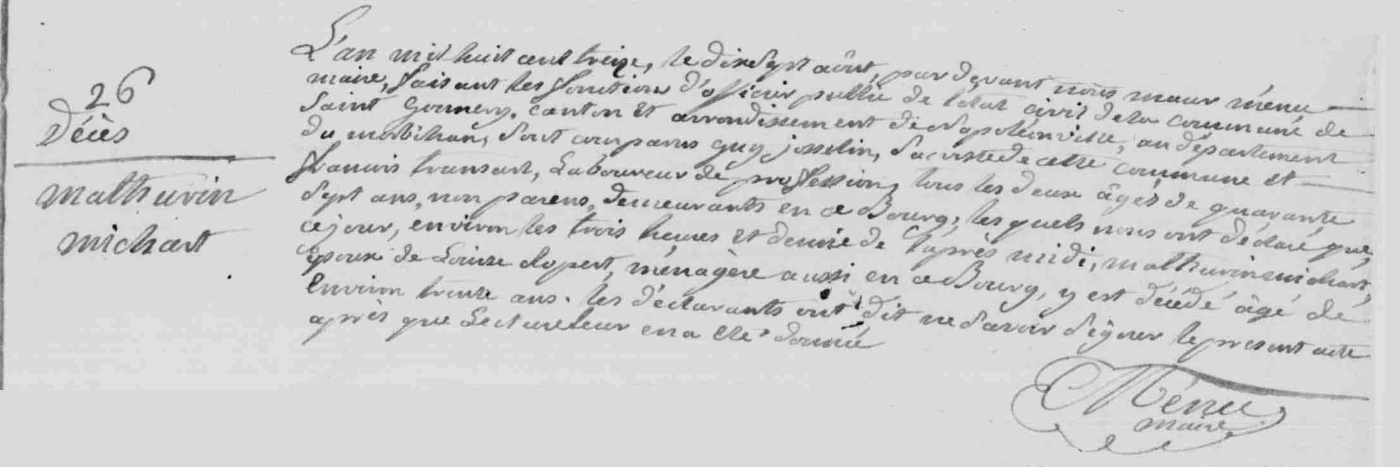 26
Décès
mathurin
michart
L'an mil huit cent treize, le dixsept aôut, par devant nous maur ménu
maire, faisant les fonctions d'officier public de l'état civil de la commune de
saint Gonnery, canton et arrondissement de Napoléonville, au département
du morbihan, sont comparus guy josselin, sacriste de cette commune et
francois transart, Laboureur de profession, tous les deux âgés de quarante
sept ans, non parens, demeurants en ce Bourg, les quels nous ont déclaré que
cejour, environ les trois heures et demie de l'après midi, mathurin michart,
époux de Louise lopert, ménagère aussi en ce Bourg, y est décédé âgé de
Environ trente ans. les déclarants ont dit ne savoir signer le present acte
après que Lecture leur en a eté donnée
Ménu
maire